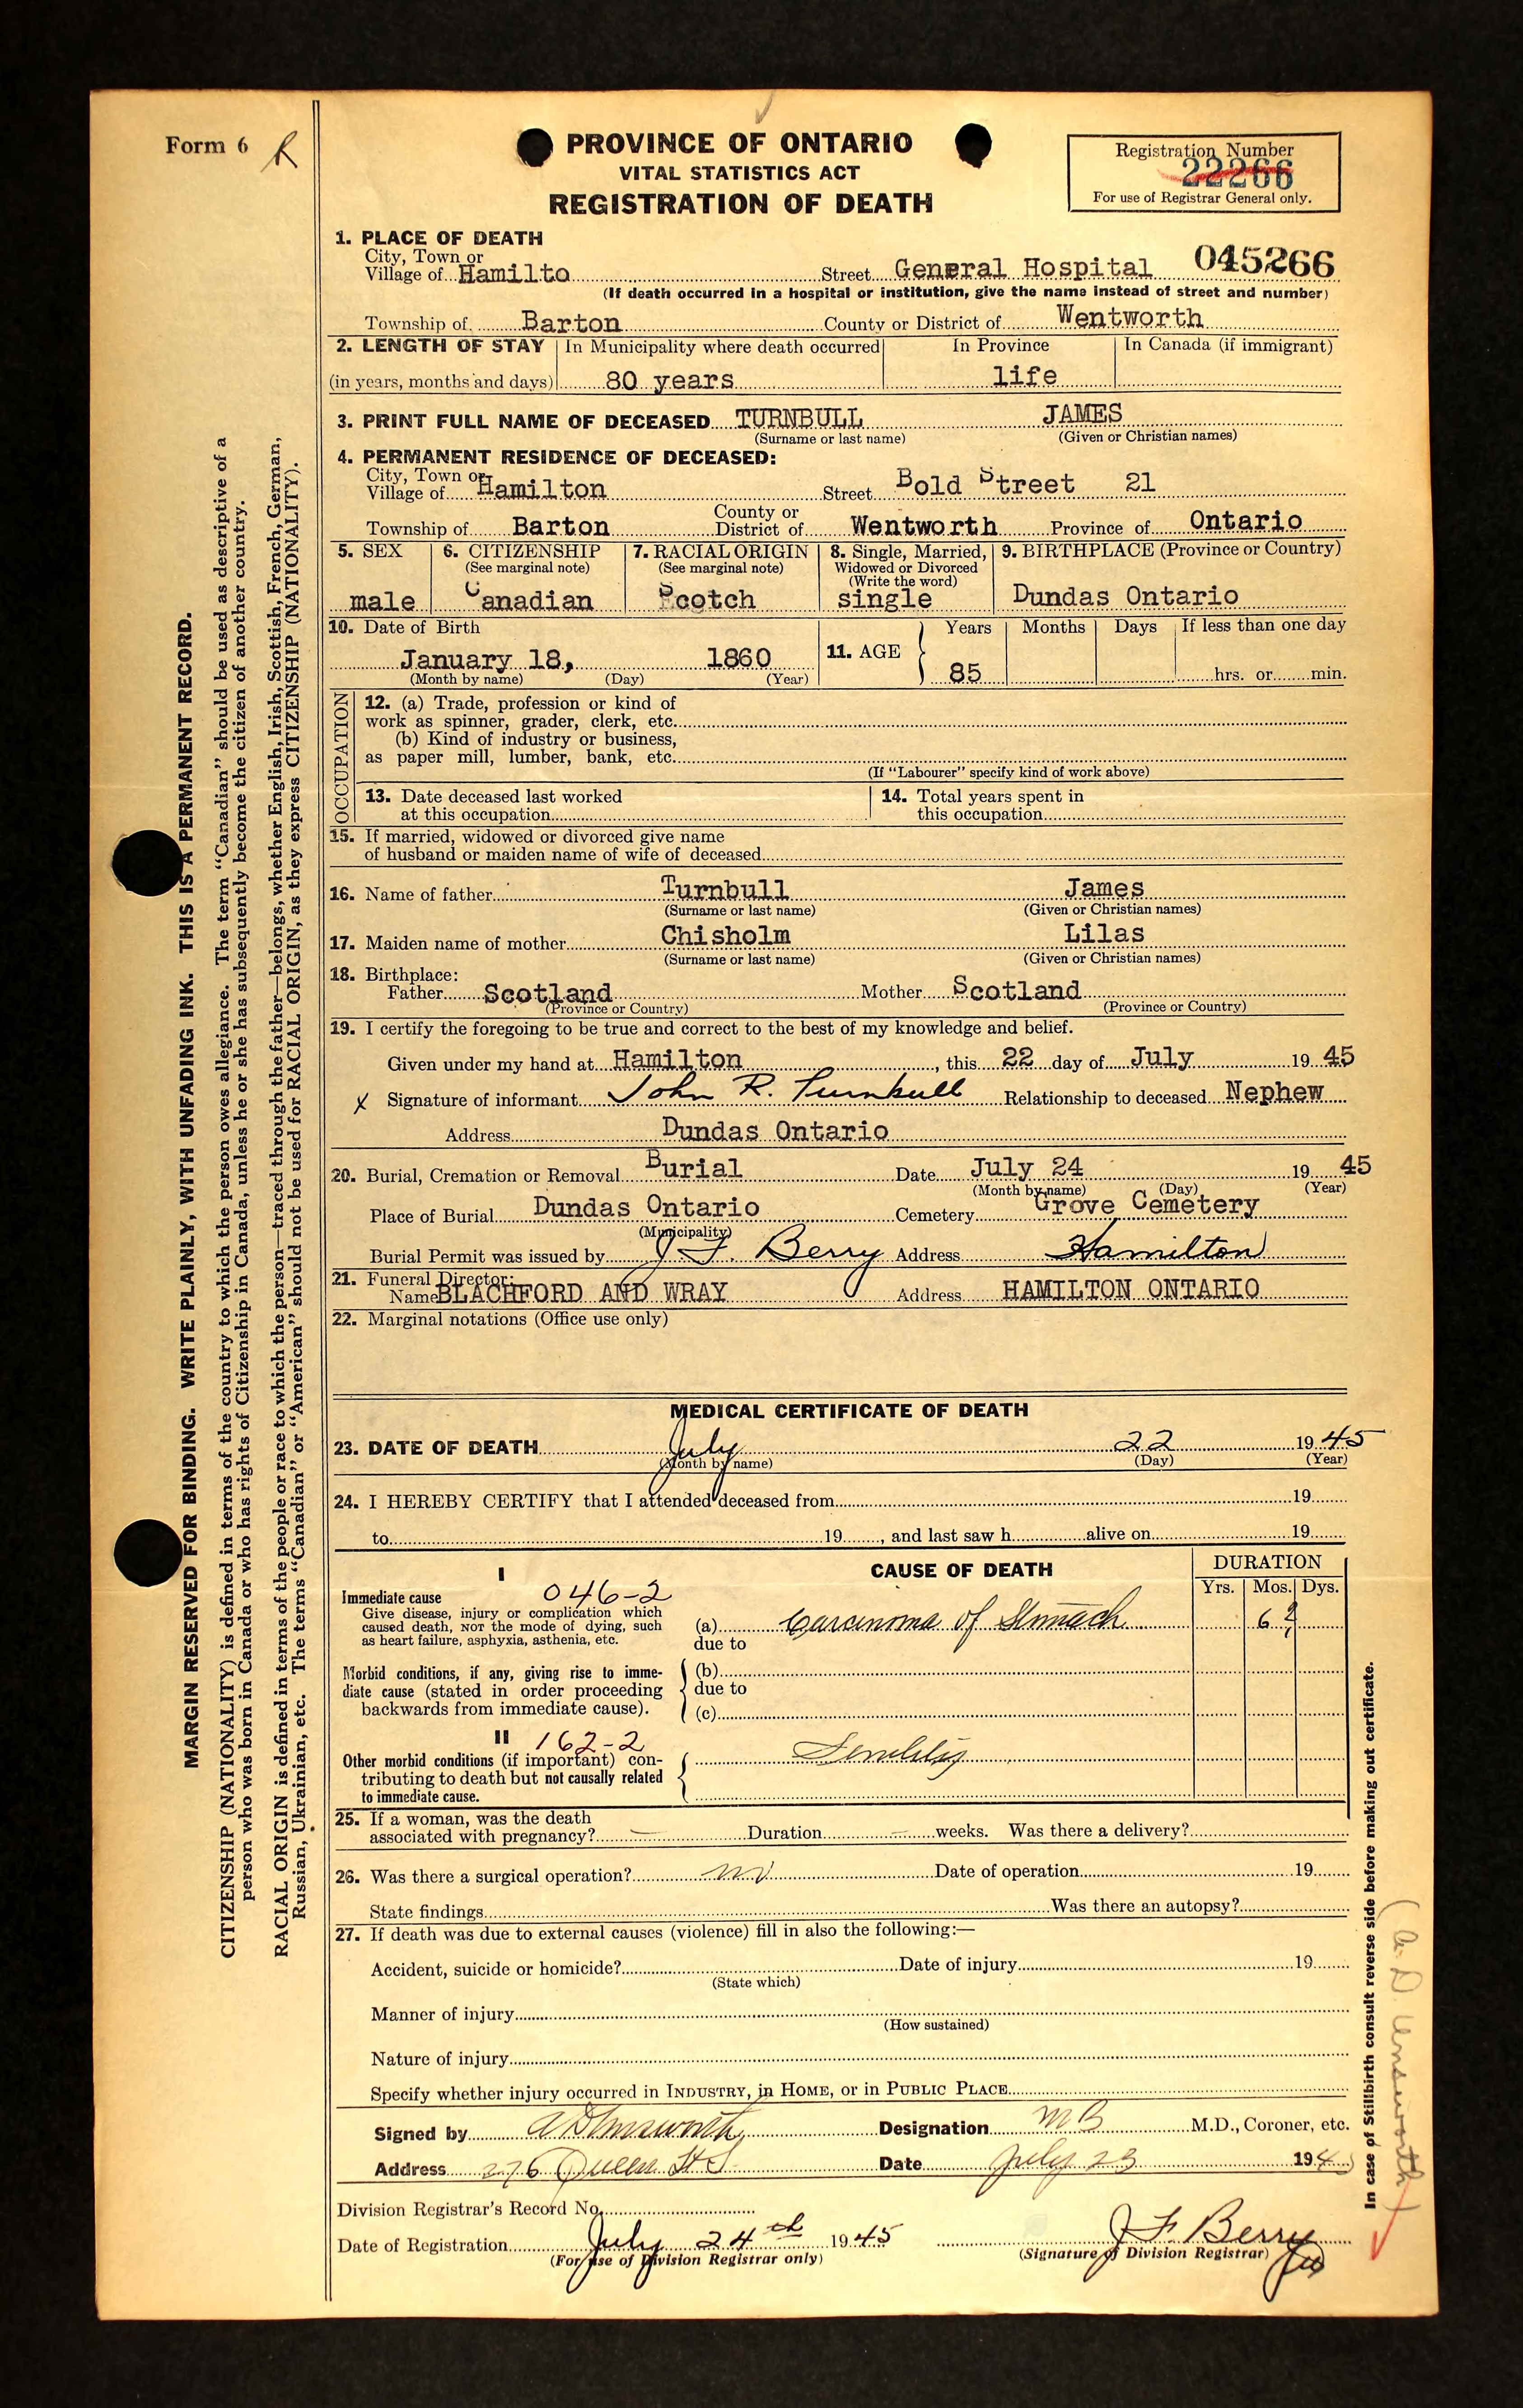 Form 6 R
PROVINCE OF ONTARIO
VITAL STATISTICS ACT
REGISTRATION OF DEATH
Registration Number
22266
For use of Registrar General only.
045266
1. PLACE OF DEATH
City, Town or
Village of Hamilto Street General Hospital
(If death occurred in a hospital or institution, give the name instead of street and number)
Township of Barton County or District of Wentworth
2. LENGTH OF STAY In Municipality where death occurred In Province In Canada (if immigrant)
(in years, months and days) 80 years life
3. PRINT FULL NAME OF DECEASED TURNBULL JAMES
(Surname or last name) (Given or Christian names)
4. PERMANENT RESIDENCE OF DECEASED:
City, Town or
Village of Hamilton Street Bold Street 21
Township of Barton County or District of Wentworth Province of Ontario
5. SEX 6. CITIZENSHIP 7. RACIAL ORIGIN 8. Single, Married, 9. BIRTHPLACE (Province or Country)
(See marginal note) (See marginal note) Widowed or Divorced
(Write the word)
male Canadian Scotch single Dundas Ontario
10. Date of Birth 11. AGE Years Months Days If less than one day
January 18, 1860 85 hrs. or min.
(Month by name) (Day) (Year)
OCCUPATION
12. (a) Trade, profession or kind of
work as spinner, grader, clerk, etc.
(b) Kind of industry or business,
as paper mill, lumber, bank, etc.
(If "Labourer" specify kind of work above)
13. Date deceased last worked 14. Total years spent in
at this occupation this occupation
15. If married, widowed or divorced give name
of husband or maiden name of wife of deceased
16. Name of father Turnbull James
(Surname or last name) (Given or Christian names)
17. Maiden name of mother Chisholm Lilas
(Surname or last name) (Given or Christian names)
18. Birthplace:
Father Scotland Mother Scotland
(Province or Country) (Province or Country)
19. I certify the foregoing to be true and correct to the best of my knowledge and belief.
Given under my hand at Hamilton, this 22 day of July 19 45
X Signature of informant John R. Turnbull Relationship to deceased Nephew
Address Dundas Ontario
20. Burial, Cremation or Removal Burial Date July 24 19 45
(Month by name) (Day) (Year)
Place of Burial Dundas Ontario Cemetery Grove Cemetery
(Municipality)
Burial Permit was issued by J F. Berry Address Hamilton
21. Funeral Director:
Name BLACHFORD AND WRAY Address HAMILTON ONTARIO
22. Marginal notations (Office use only)
MEDICAL CERTIFICATE OF DEATH
23. DATE OF DEATH July 22 19 45
(Month by name) (Day) (Year)
24. I HEREBY CERTIFY that I attended deceased from 19
to 19, and last saw h alive on 19
I CAUSE OF DEATH DURATION
046-2 Yrs. Mos. Dys.
Immediate cause
Give disease, injury or complication which
caused death, NOT the mode of dying, such
as heart failure, asphyxia, asthenia, etc.
(a) Carcinoma of Stomach 6?
due to
Morbid conditions, if any, giving rise to imme-
diate cause (stated in order proceeding
backwards from immediate cause).
(b)
due to
(c)
II 162-2
Other morbid conditions (if important) con-
tributing to death but not causally related
to immediate cause.
Senility
25. If a woman, was the death
associated with pregnancy? — Duration — weeks. Was there a delivery?
26. Was there a surgical operation? no Date of operation 19
State findings Was there an autopsy?
27. If death was due to external causes (violence) fill in also the following:—
Accident, suicide or homicide? Date of injury 19
(State which)
Manner of injury
(How sustained)
Nature of injury
Specify whether injury occurred in INDUSTRY, in HOME, or in PUBLIC PLACE
Signed by Designation MB M.D., Coroner, etc.
Address 276 Queen St S Date July 23 194
Division Registrar's Record No.
Date of Registration July 24th 19 45 J F Berry
(For use of Division Registrar only) (Signature of Division Registrar)
MARGIN RESERVED FOR BINDING. WRITE PLAINLY, WITH UNFADING INK. THIS IS A PERMANENT RECORD.
CITIZENSHIP (NATIONALITY) is defined in terms of the country to which the person owes allegiance. The term "Canadian" should be used as descriptive of a
person who was born in Canada or who has rights of Citizenship in Canada, unless he or she has subsequently become the citizen of another country.
RACIAL ORIGIN is defined in terms of the people or race to which the person—traced through the father—belongs, whether English, Irish, Scottish, French, German,
Russian, Ukrainian, etc. The terms "Canadian" or "American" should not be used for RACIAL ORIGIN, as they express CITIZENSHIP (NATIONALITY).
In case of Stillbirth consult reverse side before making out certificate.